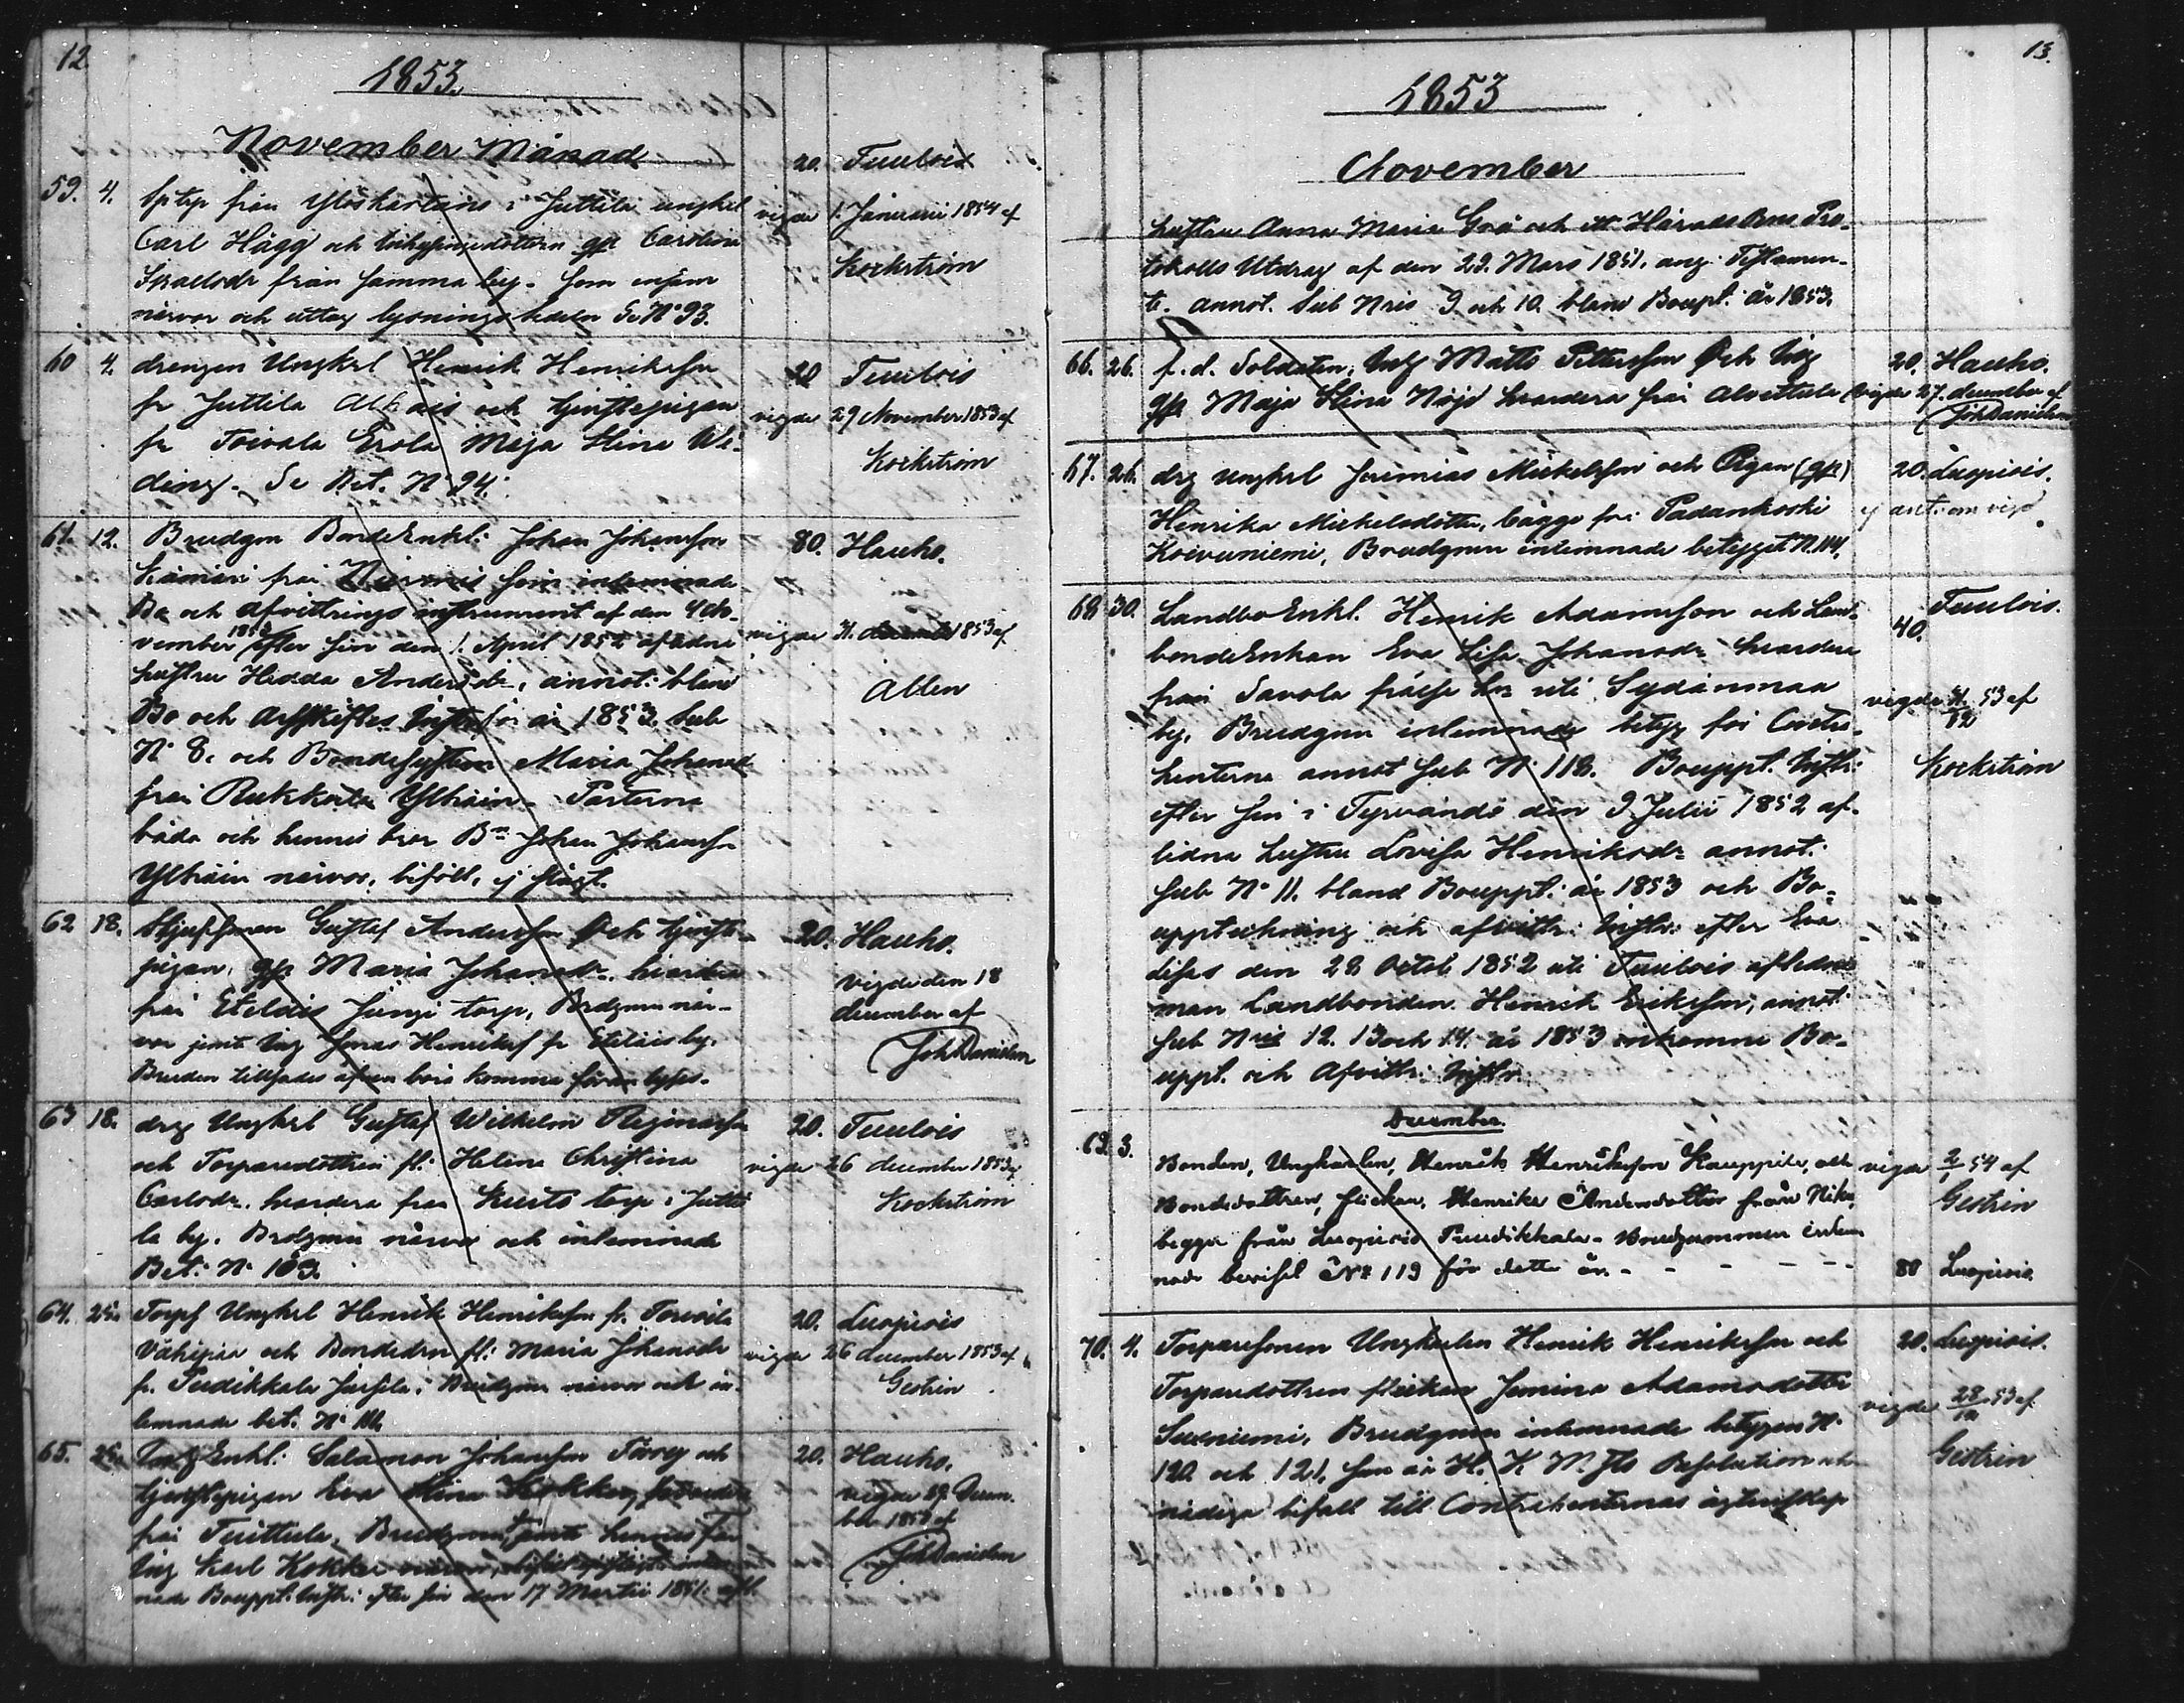 12
1853.
November Månad
59. 4. från Ylöskartano i Juttila ungkrl
Carl Hägg och Inhysingedottern Carolina
från samma by. som
närvar och uttog lysningssedeln Se No 93.
20. Tuulois
vigde 1. Januarii 1854 af
Kockström
60 4. drengen Ungkrl Henrik Henriksson
fr Juttila och tjenstepigan
fr Toivala Erola Maja Stina
Se Bet. No 94.
20 Tuulois
vigde 29 November 1853 af
Kockström
61. 12. Brudgm BondeEnkl: Johan Johansson
från som inlemnade
Bo och afvittrings instrument af den 4 No-
vember 1852 efter sin den 1. April 1852 aflidna
hustru Hedda Andersdr, annot: bland
Bo och Arfskiftes Instr för år 1853 sub
No 8. och Maria Johansd
från Rukkoila Ylhäin. Parterna
båda och hennes bror Bn Johan Johansson
Ylhäin närvor, biföll, ej slägt.
80. Hauho.
vigde 31. december 1853 af
Allen
62 18. Gustaf Andersson och tjenste-
pigan, Maria Johansdr. hvardera
från Eteläis torp, Brdgmn när-
var jemte Jonas Henriksf fr Eteläis by.
Bruden tillsades äfven böra komma förän lyses.
20. Hauho.
vigde den 18
december af
Joh Danielson
63 18. drg Ungkrl Gustaf Wilhelm
och Torparedottren fl: Helena Christina
Carlsdr. hvardera från Kursto torp i Jutti
la by. Brdgmn närvar och inlemnade
Bet: No 103.
20. Tuulois
vigde 26 december 1853 af
Kockström
64. 25. Torpf Ungkrl Henrik Henriksson fr. Toivola
Vähipää och Bondedrn fl: Maria Johansdr
fr. Pudikkala Brudgmn närvar och in-
lemnade bet. No
20. Luopiois
vigde 26 december 1853 af
Gestrin
65. 25. Enkl: Salamon Johansson och
tjenstepigan Eva Stina Kokko
från Tuittula, Brudgmn jemte hennes Far
Karl Kokko
nade Bouppt. Instr: efter sin den 17 Martii 1851. afl.
20. Hauho.
vigde 29 Decem-
ber 1853 af
Joh Danielson
13.
1853
November
hustru Anna Maria Grå och ett Härads Rens Pro-
tokolls Utdrag af den 29. Mars 1851. ang. Testamen-
te. annot. sub Nris 9 och 10. bland Bouppt: år 1853.
66. 26. f. d. Soldaten, Matts Pettersson och
Maja Stina Nöjd hvardera från Alvettula
20. Hauho.
vigde 27. december af
Joh Danielson
67. 26. drg ungkrl Jeremias Mickelsson och Pigan
Henrika Mickelsdotter, bägge från Padankoski
Koivuniemi, Brudgmn inlemnade betyget N. 114.
20. Luopiois.
ej ant: om vigd
68 30. LandboEnkl. Henrik Adamsson och Land-
bondeEnkan Eva Lisa Johansdr hvardera
från Savola frälse hn uti Sydänmaa
by, Brudgmn inlemnade betyg för Contra-
henterna annot sub No 118. Bouppt. Instr:
efter sin i Tyrvändö den 9 Julii 1852 af-
lidna hustru Lovisa Henriksdr annot.
sub No 11. bland Bouppt: år 1853 och Bo-
uppteckning och afvittr: Instr: efter Eva
Lisas den 28 Octob. 1852 uti Tuulois aflidne
man Landbonden Henrik Eriksson, annot.
sub Nris 12. 13 och 14. år 1853 inkomne Bo-
uppt. och Afvittr. Instr.
40. Tuulois.
vigde 31/12 53 af
Kockström
December.
69. 3. Bonden, Ungkarlen, Henrik Henriksson Kauppila, och
Bondedottren, flickan, Henrika Andersdotter från
begge från Luopiois Puudikkala. Brudgummen inlem
nade bevisel No 119 för detta år. - - - -
vigde 2/1 54 af
Gestrin
80 Luopiois.
70. 4. Torparesonen Ungkarlen Henrik Henriksson och
Torparedottren flickan Janina Adamsdotter
Suoniemi, Brudgmn inlemnade betygen No
120. och 121. samt H. K. M:jts Resolution och
nådiga bifall till Contrahenternas ägtenskap
20. Luopiois.
vigde 28/12 53 af
Gestrin